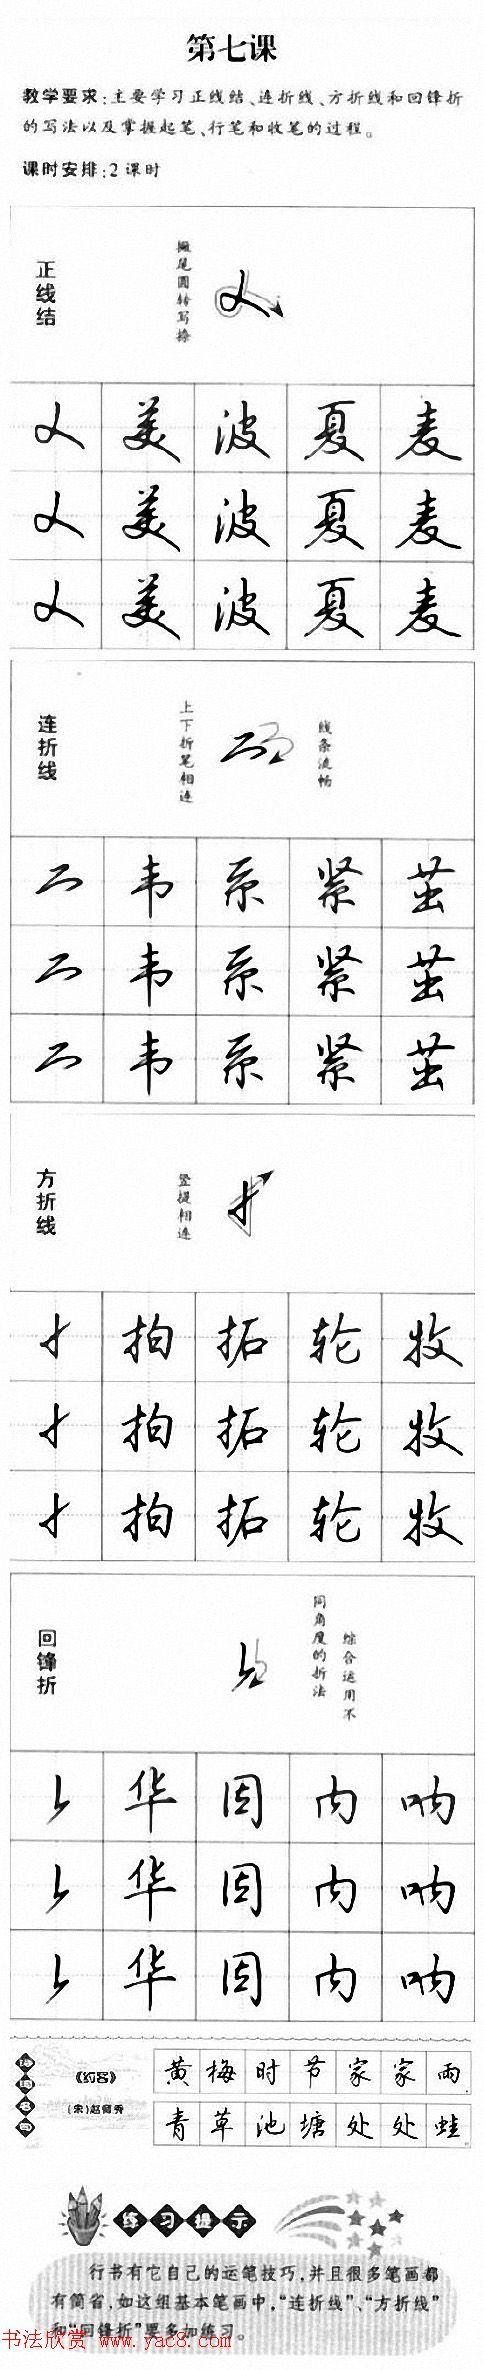 第七课
教学要求:主要学习正线结、连折线、方折线和回锋折
的写法以及掌握起笔、行笔和收笔的过程。
课时安排:2课时
正线结
撇尾圆转写捺
美 波 夏 麦
美 波 夏 麦
美 波 夏 麦
连折线
上下折笔相连
线条流畅
韦 系 紧 茧
韦 系 紧 茧
韦 系 紧 茧
方折线
竖提相连
拍 拓 轮 牧
拍 拓 轮 牧
拍 拓 轮 牧
回锋折
综合运用不
同角度的折法
华 因 内 呐
华 因 内 呐
华 因 内 呐
《约客》
(宋)赵师秀
黄梅时节家家雨
青草池塘处处蛙
练习提示
行书有它自己的运笔技巧,并且很多笔画都
有简省,如这组基本笔画中,“连折线”、“方折线”
和“回锋折”要多加练习。
书法欣赏 www.yac8.com